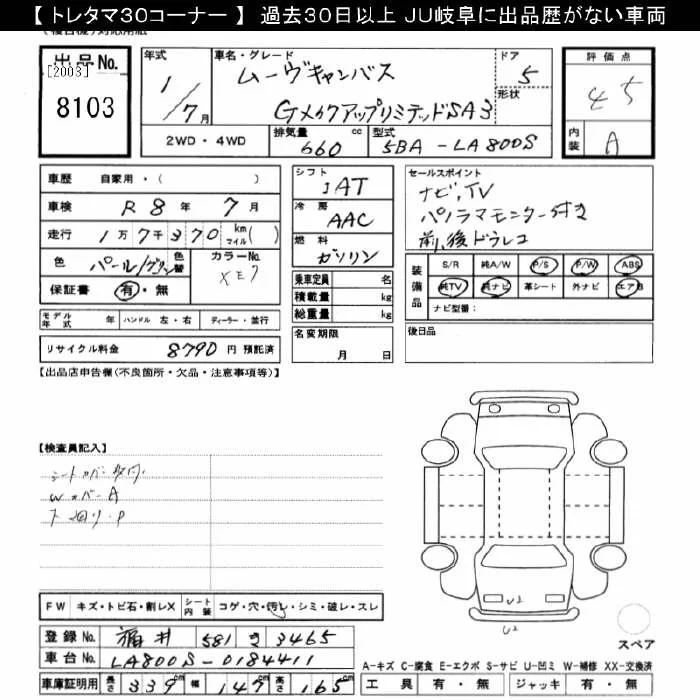 【 トレタマ30コーナー 】 過去30日以上 JU岐阜に出品歴がない車両
出品No.
[2003]
8103
年式 1/7月
車名・グレード ムーヴキャンバス
Gメイクアップリミテッド SA3
ドア 5
形状
評価点 4.5
内装 A
2WD・4WD
排気量 660 cc
型式 5BA-LA800S
車歴 自家用・( )
車検 R8年7月
走行 1万7千370 km マイル( )
色 パール/グリン 色替
カラーNo. XE7
保証書 有・無
モデル年式 年 ハンドル 左・右 ディーラー・並行
リサイクル料金 8790 円 預託済
シフト IAT
冷房 AAC
燃料 ガソリン
乗車定員 名
積載量 kg
総重量 kg
名変期限
月 日
セールスポイント
ナビ,TV
パノラマモニター付き
前,後ドラレコ
装備品
S/R 純A/W P/S P/W ABS
純TV 純ナビ 革シート 外ナビ エアB
ナビ型番:
後日品
【出品店申告欄(不良箇所・欠品・注意事項等)】
【検査員記入】
シートカバー取付
Wカバー A
下回り・P
FW キズ・トビ石・割レX シート内装 コゲ・穴・汚レ・シミ・破レ・スレ
登録No. 福井 581 き 3465
車台No. LA800S-0184411
車庫証明用 長さ 339 cm 幅 147 cm 高さ 165 cm
U2
U2
スペア
A-キズ C-腐食 E-エクボ S-サビ U-凹ミ W-補修 XX-交換済
工具 有・無 ジャッキ 有・無